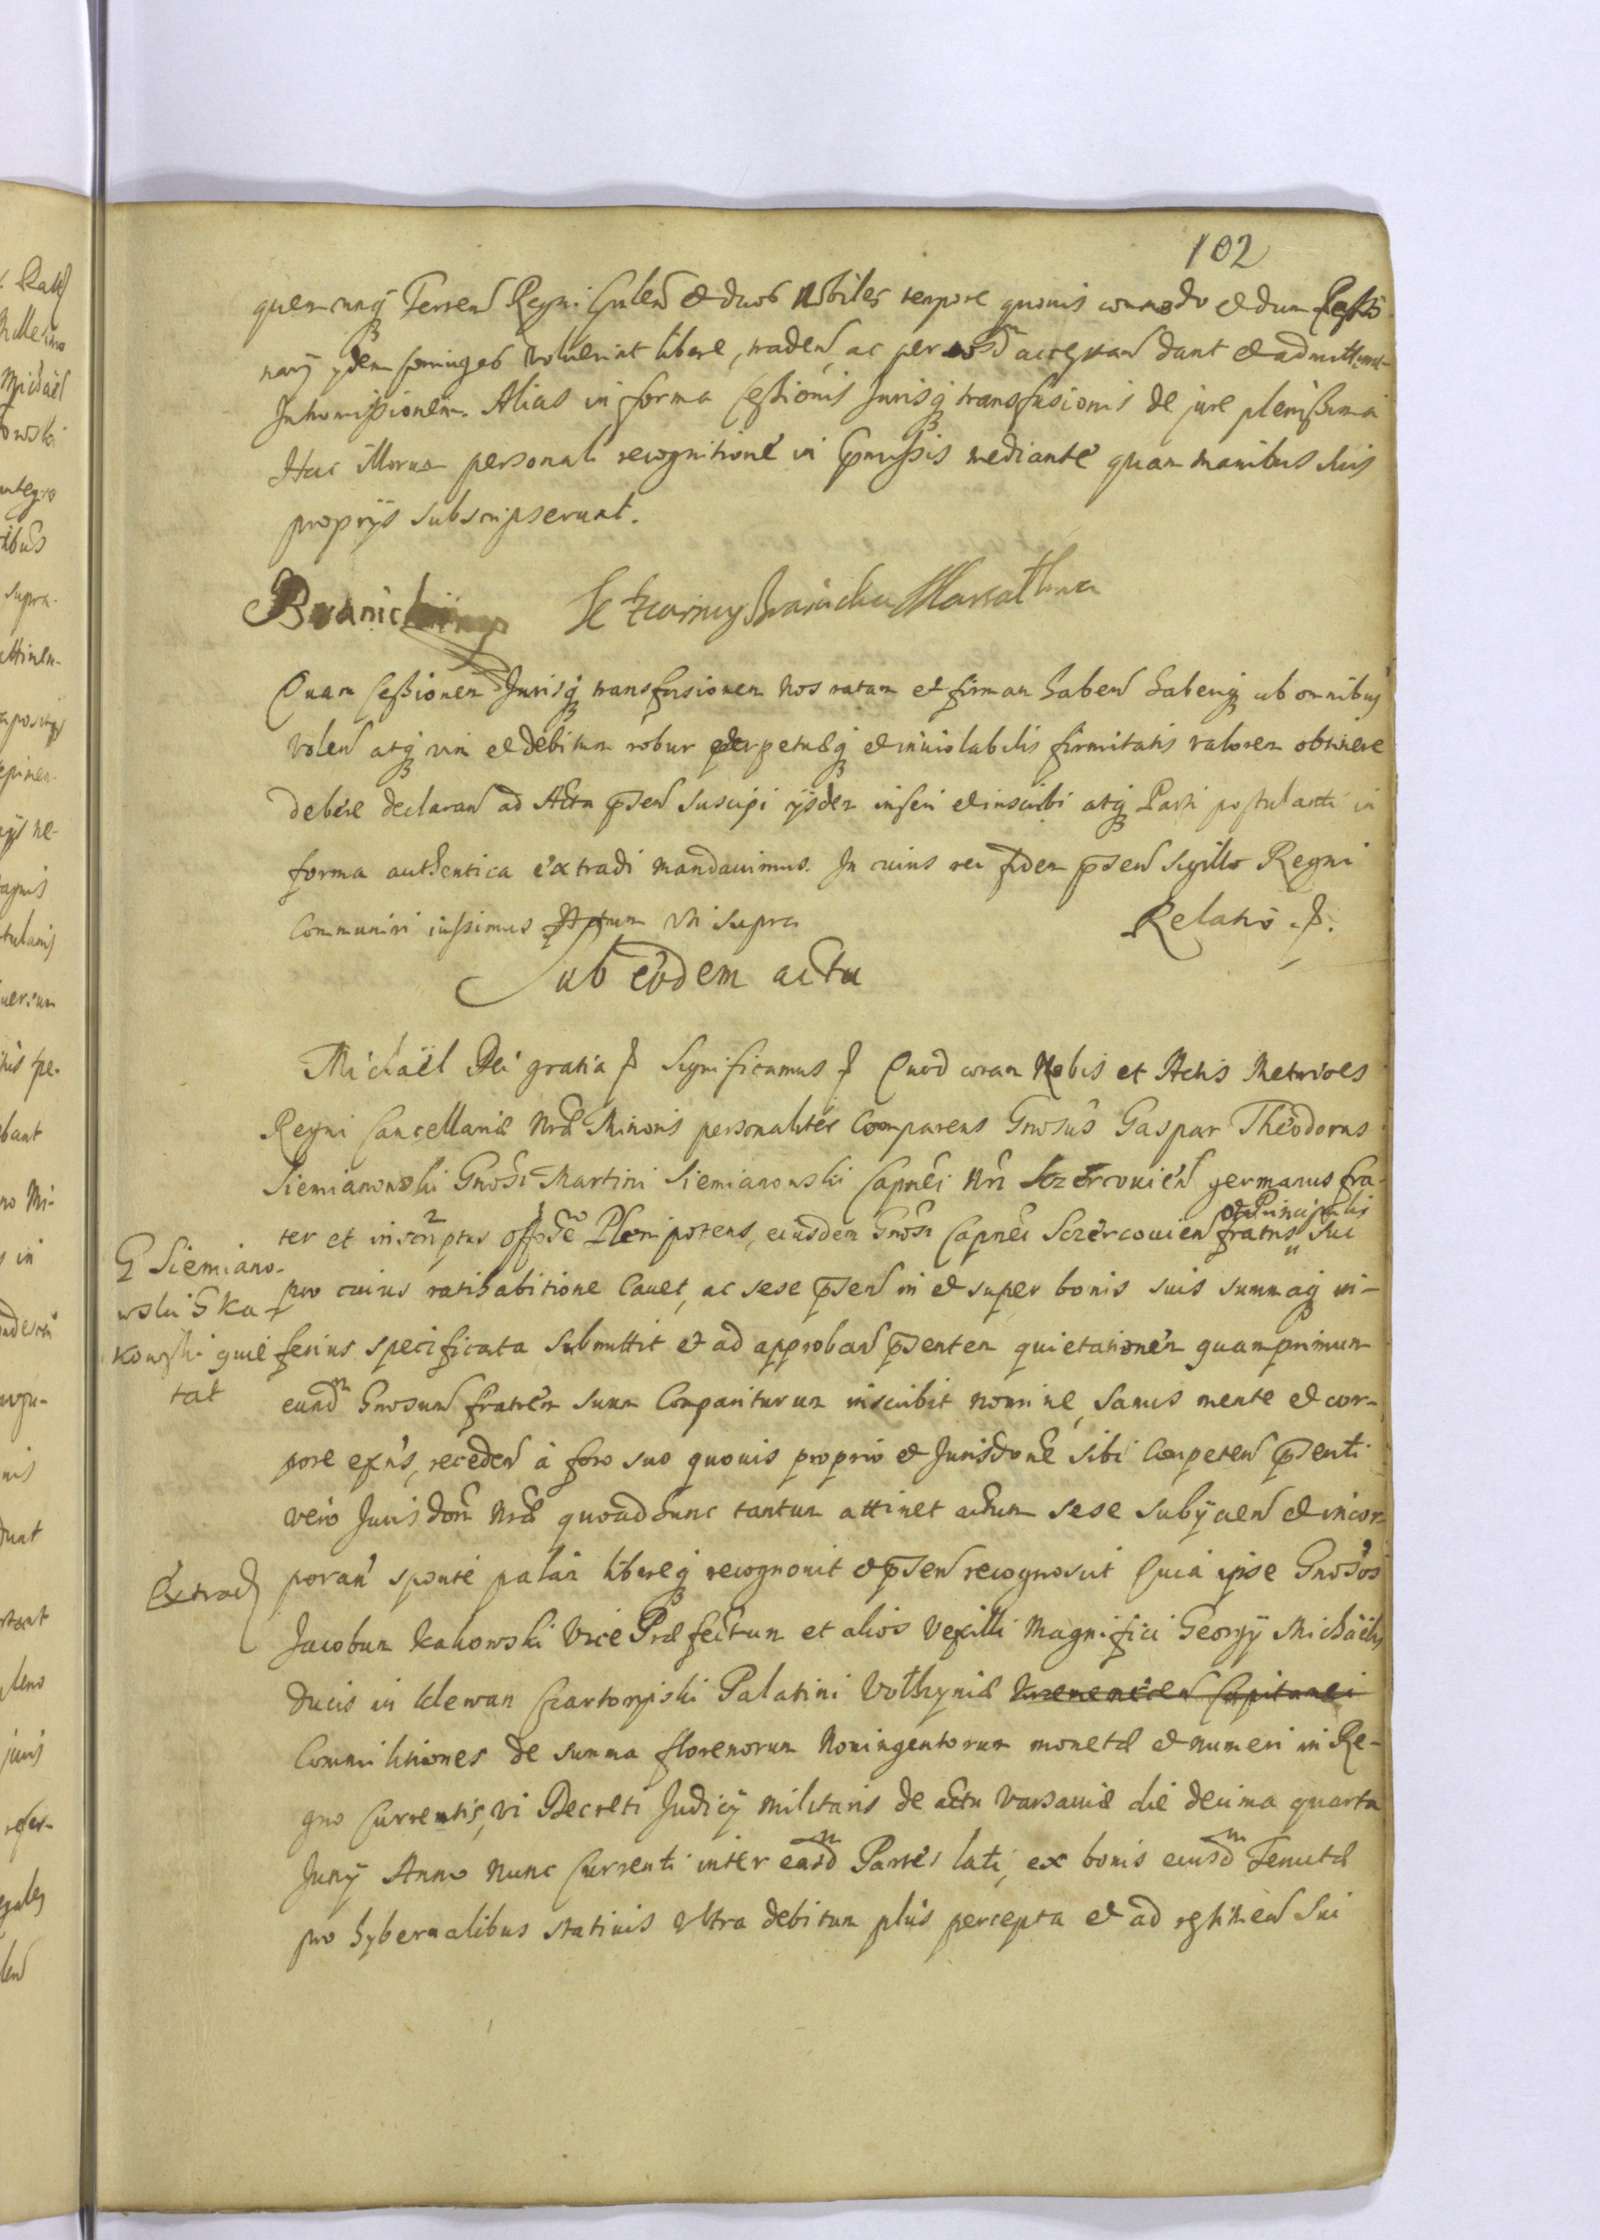 102
quemcunq Terren Regni Gnlen et duos Nobiles tempore quouis commodo et dum Cessio
narij ydem coniuges voluerint libere, traden ac per eosd acceptan dant et admittunt
Intromissionem. Alias in forma Cessionis Jurisq transfusionis de jure plenissima
Hac illorum personali recognitione in praemissis mediante quam manibus suis
proprijs subscripserunt.
Branicki
Quam Cessionem Jurisq transfusionem Nos ratam et firmam haben haberiq ab omnibus
volen atq vim et debitum robur perpetuaeq et inuiolabilis firmitatis valorem obtinere
debere declaran ad Acta psen suscipi ijsdem inseri et inscribi atq Parti postulanti in
forma authentica extradi mandauimus. In cuius rei fidem psen sigillo Regni
Communiri iussimus Actum vti supra Relatio
Sub eodem actu
Michaël Dei gratia Significamus Quod coram Nobis et Actis Metrices
Regni Cancellariae Nrae Minoris personaliter Comparens Gnosus Gaspar Theodorus
Siemianowski Gnosi Martini Siemianowski Capnei Nri Szczercouien germanus fra-
ter et inscriptus offose Plenipotens, eiusdem Gnosi Capnei Sczercouien fratris sui
et Principalis
pro cuius ratihabitione Cauet, ac sese psen in et super bonis suis summaq in-
G Siemiano-
wski Ka-
kowski quie
tat
ferius specificata submittit et ad approban psentem quietationem quamprimum
eund Gnosum fratrem suum Compariturum inscribit nomine, Sanus mente et cor-
pore exns, receden à foro suo quouis proprio et Jurisdone sibi Competen psenti
vero Jurisdoni Nrae quoad hunc tantum attinet actum sese subijcien et incor-
Extrad
poran sponte palam libereq recognouit et psen recognoscit Quia ipse Gnosos
Jacobum Kakowski Vice Praefectum et alios Vexilli Magnifici Georgij Michaëlis
Ducis in Klewan Czartoryiski Palatini Volhyniae Krzemenecen Capitanei
Commilitiones de summa florenorum Noningentorum monetae et numeri in Re-
gno Currentis, vi Decreti Judicij Militaris de actu Varsauiae die decima quarta
Junij Anno nunc Currenti inter easd Partes lati, ex bonis eiusd Tenutae
pro hybernalibus statiuis vltra debitum plus percepta et ad restituen sui